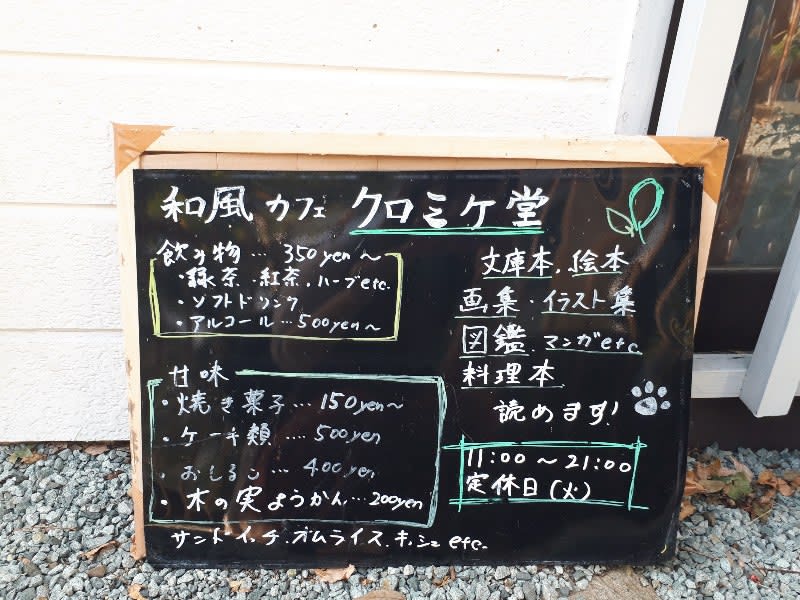 和風カフェ クロミケ堂
飲み物… 350yen～
・緑茶.紅茶.ハーブetc.
・ソフトドリンク
・アルコール…500yen～
甘味
・焼き菓子…150yen～
・ケーキ類….500yen
・おしるこ…400yen
・木の実ようかん…200yen
サンドイッチ.オムライス.キッシュetc.
文庫本.絵本
画集・イラスト集
図鑑.マンガetc
料理本
読めます!
11:00～21:00
定休日(火)